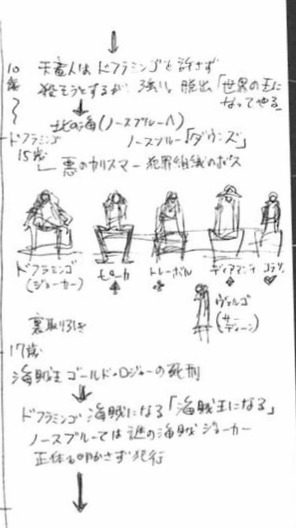 10歳
天竜人はドフラミンゴを許さず
殺そうとするが 強い。脱出「世界の王に
なってやる」
北の海(ノースブルーへ)
ドフラミンゴ
15歳
ノースブルー「ダウンズ」
悪のカリスマー 犯罪組織のボス
ドフラミンゴ
(ジョーカー)
ピーカ
♠
トレーボル
♣
ディアマンテ
♦
コラソン
♥
ヴェルゴ
裏取り引き
17歳
海賊王ゴールド・ロジャーの死刑
ドフラミンゴ海賊になる「海賊王になる」
ノースブルーでは謎の海賊ジョーカー
正体も明かさず犯行